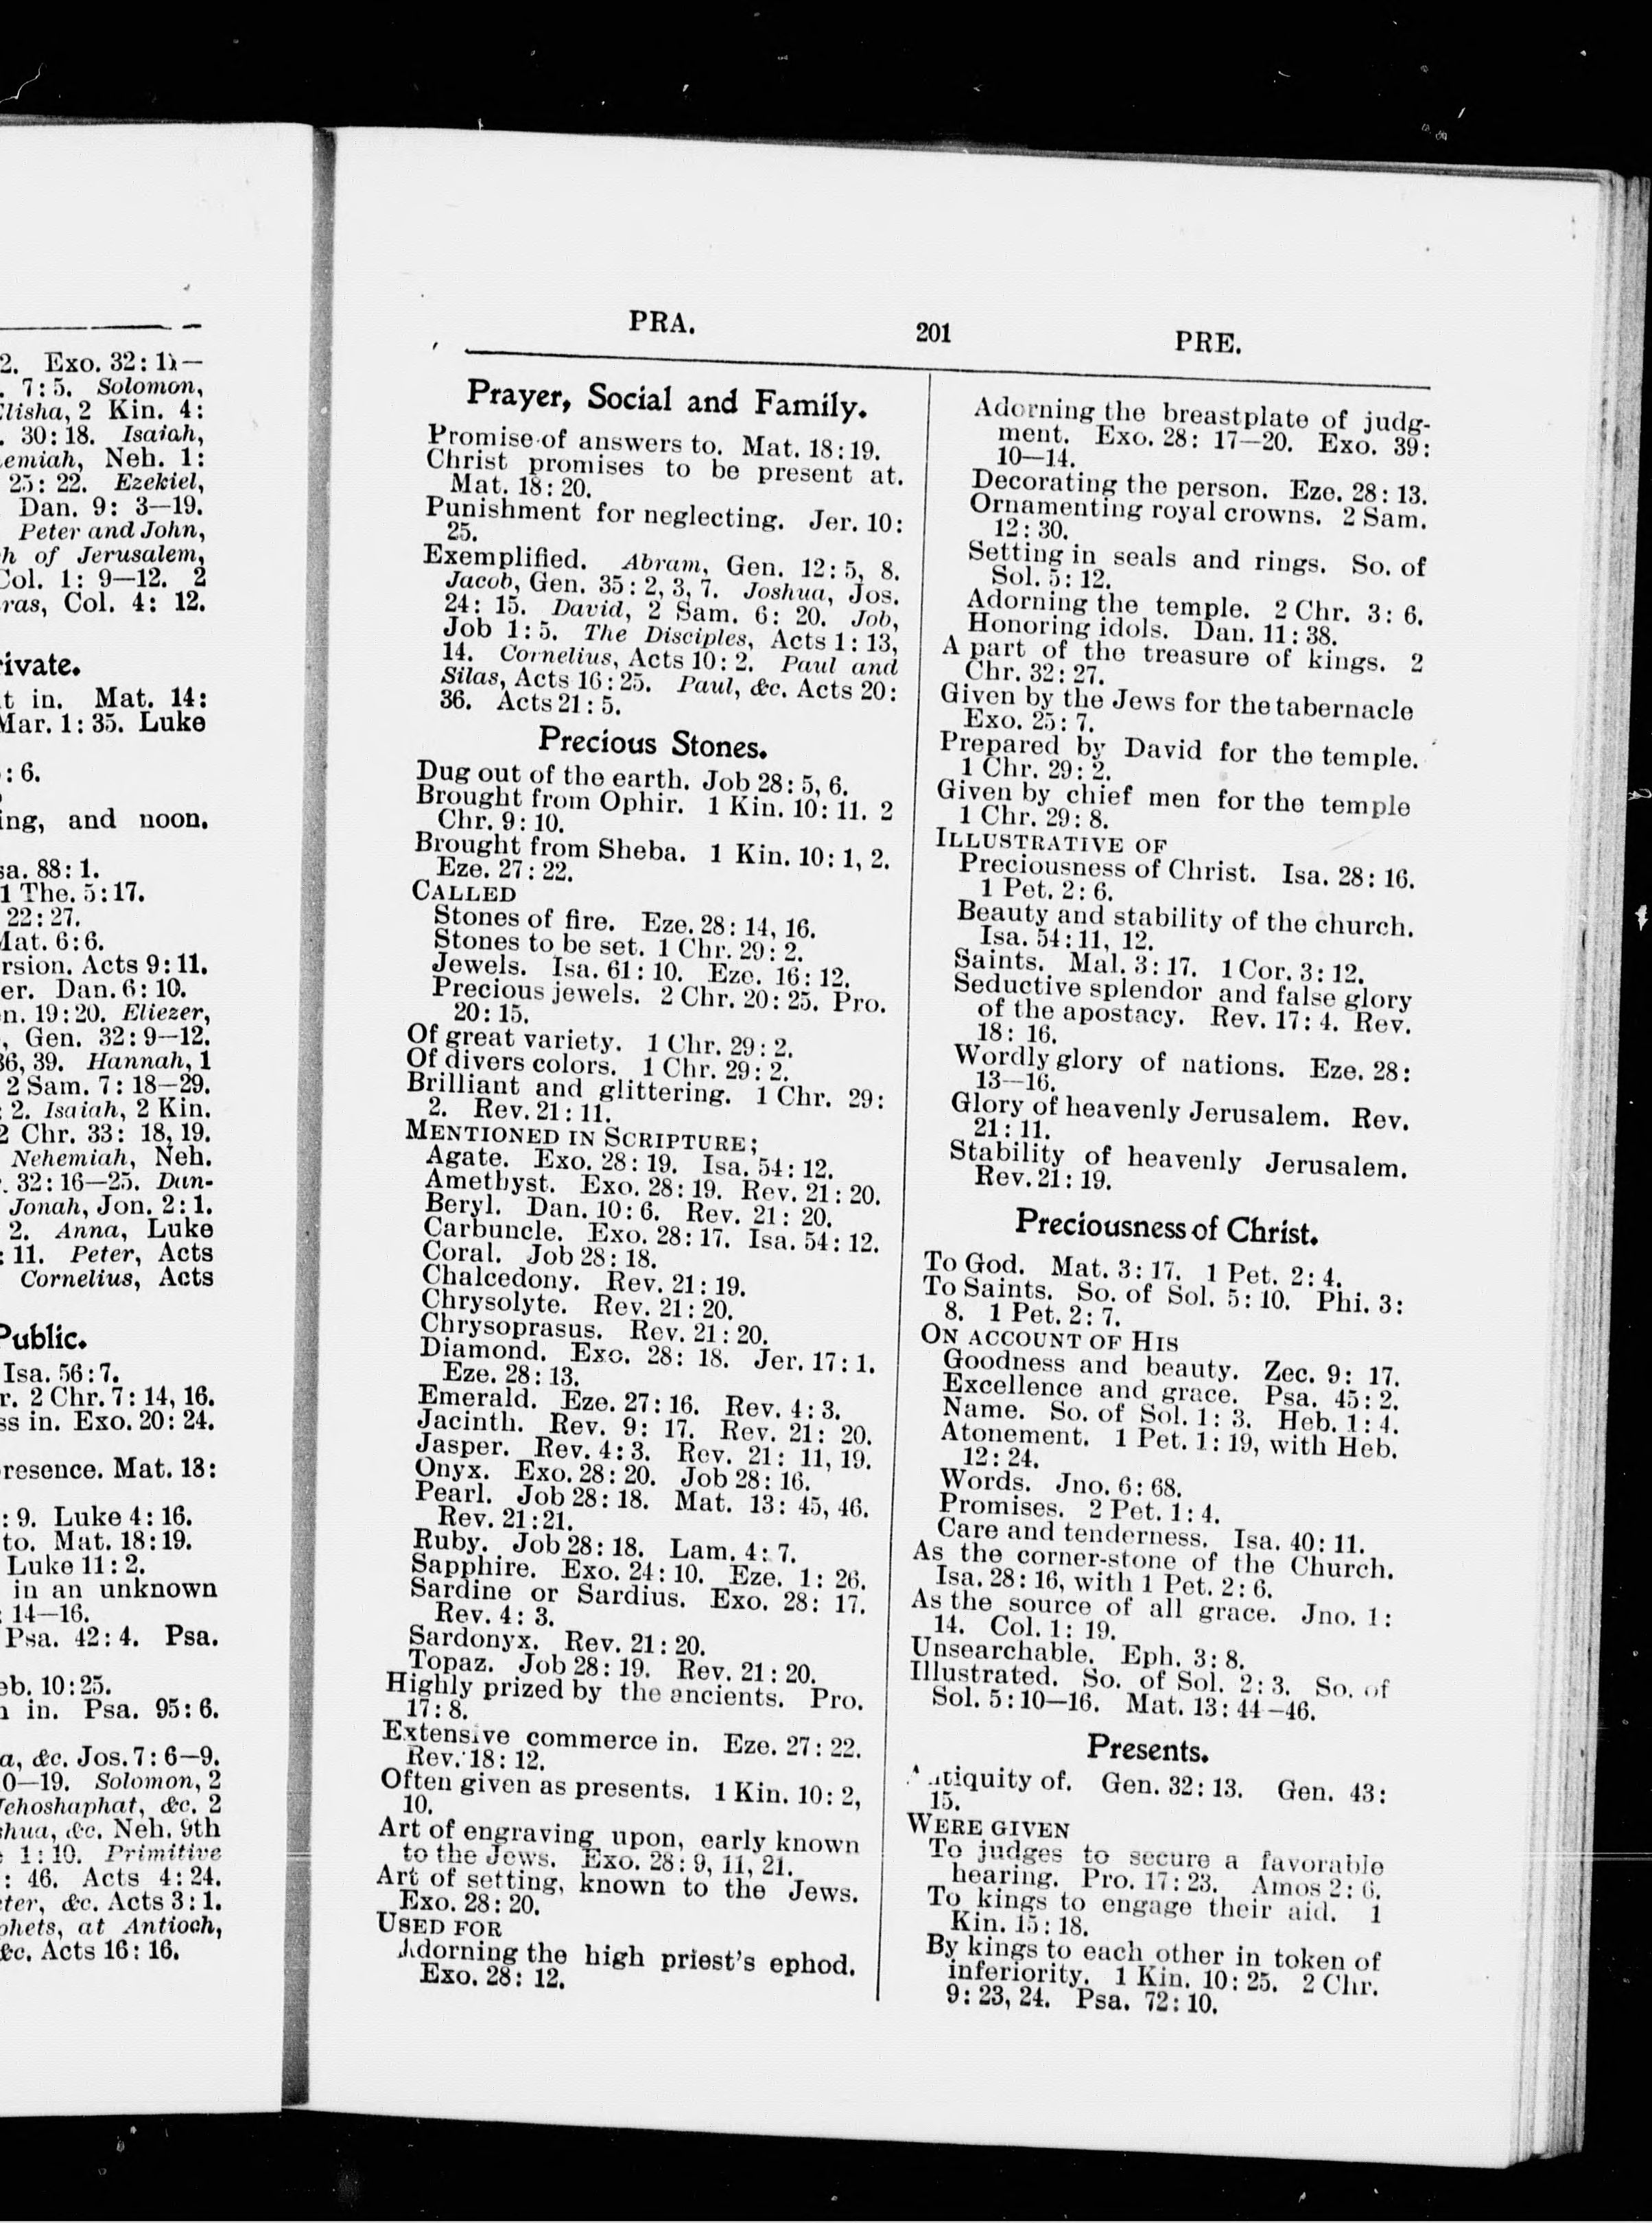 2. Exo. 32: 11—
. 7:5. Solomon,
lisha, 2 Kin. 4:
. 30:18. Isaiah,
emiah, Neh. 1:
25: 22. Ezekiel,
Dan. 9: 3—19.
Peter and John,
h of Jerusalem,
Col. 1: 9—12. 2
ras, Col. 4: 12.
rivate.
t in. Mat. 14:
Mar. 1: 35. Luke
: 6.
ing, and noon.
sa. 88: 1.
1 The. 5:17.
22: 27.
Mat. 6:6.
rsion. Acts 9:11.
er. Dan. 6: 10.
n. 19:20. Eliezer,
, Gen. 32: 9—12.
36, 39. Hannah, 1
2 Sam. 7: 18—29.
: 2. Isaiah, 2 Kin.
2 Chr. 33: 18, 19.
Nehemiah, Neh.
. 32: 16—25. Dan-
Jonah, Jon. 2: 1.
2. Anna, Luke
: 11. Peter, Acts
Cornelius, Acts
Public.
Isa. 56:7.
r. 2 Chr. 7: 14, 16.
ss in. Exo. 20: 24.
resence. Mat. 18:
: 9. Luke 4: 16.
to. Mat. 18:19.
Luke 11: 2.
in an unknown
: 14—16.
Psa. 42: 4. Psa.
eb. 10:25.
n in. Psa. 95: 6.
a, &c. Jos. 7: 6—9.
0—19. Solomon, 2
Jehoshaphat, &c. 2
shua, &c. Neh. 9th
: 1: 10. Primitive
: 46. Acts 4: 24.
ter, &c. Acts 3: 1.
phets, at Antioch,
&c. Acts 16: 16.
PRA. 201 PRE.
Prayer, Social and Family.
Promise of answers to. Mat. 18:19.
Christ promises to be present at.
Mat. 18: 20.
Punishment for neglecting. Jer. 10:
25.
Exemplified. Abram, Gen. 12: 5, 8.
Jacob, Gen. 35: 2, 3, 7. Joshua, Jos.
24: 15. David, 2 Sam. 6: 20. Job,
Job 1: 5. The Disciples, Acts 1: 13,
14. Cornelius, Acts 10: 2. Paul and
Silas, Acts 16: 25. Paul, &c. Acts 20:
36. Acts 21: 5.
Precious Stones.
Dug out of the earth. Job 28: 5, 6.
Brought from Ophir. 1 Kin. 10: 11. 2
Chr. 9: 10.
Brought from Sheba. 1 Kin. 10: 1, 2.
Eze. 27: 22.
CALLED
Stones of fire. Eze. 28: 14, 16.
Stones to be set. 1 Chr. 29: 2.
Jewels. Isa. 61: 10. Eze. 16: 12.
Precious jewels. 2 Chr. 20: 25. Pro.
20: 15.
Of great variety. 1 Chr. 29: 2.
Of divers colors. 1 Chr. 29: 2.
Brilliant and glittering. 1 Chr. 29:
2. Rev. 21: 11.
MENTIONED IN SCRIPTURE;
Agate. Exo. 28: 19. Isa. 54: 12.
Amethyst. Exo. 28: 19. Rev. 21: 20.
Beryl. Dan. 10: 6. Rev. 21: 20.
Carbuncle. Exo. 28: 17. Isa. 54: 12.
Coral. Job 28: 18.
Chalcedony. Rev. 21: 19.
Chrysolyte. Rev. 21: 20.
Chrysoprasus. Rev. 21: 20.
Diamond. Exo. 28: 18. Jer. 17: 1.
Eze. 28: 13.
Emerald. Eze. 27: 16. Rev. 4: 3.
Jacinth. Rev. 9: 17. Rev. 21: 20.
Jasper. Rev. 4: 3. Rev. 21: 11, 19.
Onyx. Exo. 28: 20. Job 28: 16.
Pearl. Job 28: 18. Mat. 13: 45, 46.
Rev. 21:21.
Ruby. Job 28: 18. Lam. 4: 7.
Sapphire. Exo. 24: 10. Eze. 1: 26.
Sardine or Sardius. Exo. 28: 17.
Rev. 4: 3.
Sardonyx. Rev. 21: 20.
Topaz. Job 28: 19. Rev. 21: 20.
Highly prized by the ancients. Pro.
17: 8.
Extensive commerce in. Eze. 27: 22.
Rev. 18: 12.
Often given as presents. 1 Kin. 10: 2,
10.
Art of engraving upon, early known
to the Jews. Exo. 28: 9, 11, 21.
Art of setting, known to the Jews.
Exo. 28: 20.
USED FOR
Adorning the high priest's ephod.
Exo. 28: 12.
Adorning the breastplate of judg-
ment. Exo. 28: 17—20. Exo. 39:
10—14.
Decorating the person. Eze. 28: 13.
Ornamenting royal crowns. 2 Sam.
12: 30.
Setting in seals and rings. So. of
Sol. 5: 12.
Adorning the temple. 2 Chr. 3: 6.
Honoring idols. Dan. 11: 38.
A part of the treasure of kings. 2
Chr. 32: 27.
Given by the Jews for the tabernacle
Exo. 25: 7.
Prepared by David for the temple.
1 Chr. 29: 2.
Given by chief men for the temple
1 Chr. 29: 8.
ILLUSTRATIVE OF
Preciousness of Christ. Isa. 28: 16.
1 Pet. 2: 6.
Beauty and stability of the church.
Isa. 54: 11, 12.
Saints. Mal. 3: 17. 1 Cor. 3: 12.
Seductive splendor and false glory
of the apostacy. Rev. 17: 4. Rev.
18: 16.
Wordly glory of nations. Eze. 28:
13—16.
Glory of heavenly Jerusalem. Rev.
21: 11.
Stability of heavenly Jerusalem.
Rev. 21: 19.
Preciousness of Christ.
To God. Mat. 3: 17. 1 Pet. 2: 4.
To Saints. So. of Sol. 5: 10. Phi. 3:
8. 1 Pet. 2: 7.
ON ACCOUNT OF HIS
Goodness and beauty. Zec. 9: 17.
Excellence and grace. Psa. 45: 2.
Name. So. of Sol. 1: 3. Heb. 1: 4.
Atonement. 1 Pet. 1: 19, with Heb.
12: 24.
Words. Jno. 6: 68.
Promises. 2 Pet. 1: 4.
Care and tenderness. Isa. 40: 11.
As the corner-stone of the Church.
Isa. 28: 16, with 1 Pet. 2: 6.
As the source of all grace. Jno. 1:
14. Col. 1: 19.
Unsearchable. Eph. 3: 8.
Illustrated. So. of Sol. 2: 3. So. of
Sol. 5: 10—16. Mat. 13: 44—46.
Presents.
Antiquity of. Gen. 32: 13. Gen. 43:
15.
WERE GIVEN
To judges to secure a favorable
hearing. Pro. 17: 23. Amos 2: 6.
To kings to engage their aid. 1
Kin. 15: 18.
By kings to each other in token of
inferiority. 1 Kin. 10: 25. 2 Chr.
9: 23, 24. Psa. 72: 10.